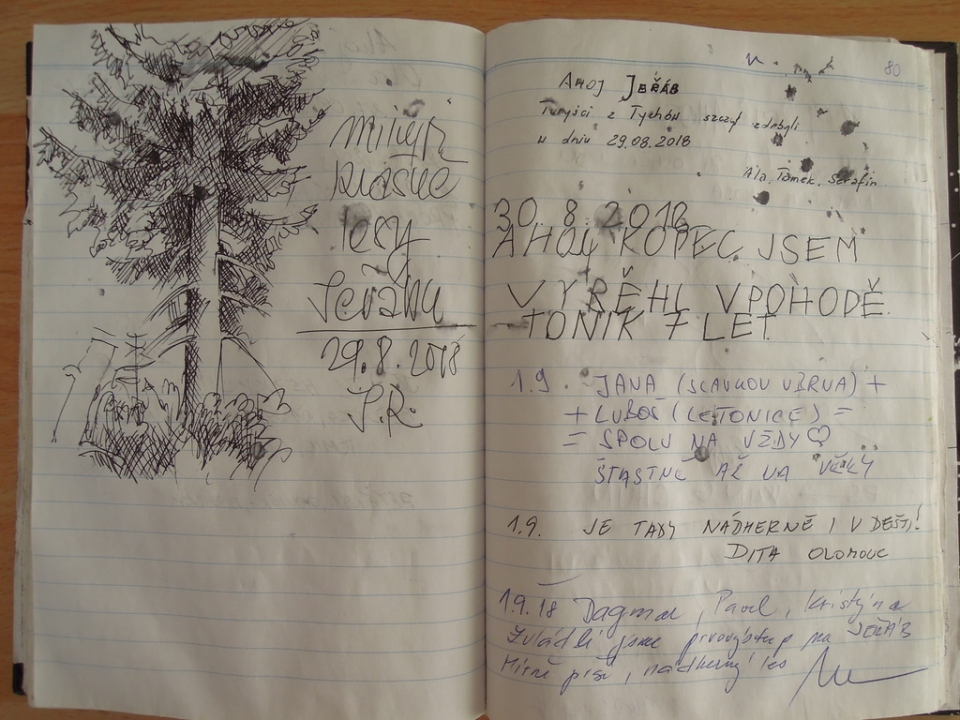 krásné
lesy
Jeřábu
29.8.2018
J.R.
80
AHOJ JEŘÁB
Turyści z Tychów szczyt zdobyli
w dniu 29.08.2018
Ala, Tomek, Serafin
30.8.2018
AHOJ KOPEC JSEM
VYBĚHL V POHODĚ
TONÍK 7 LET
1.9. JANA (SLAVKOV U BRNA) +
+ LUBOŠ (LETONICE) =
= SPOLU NA VŽDY ♡
ŠŤASTNĚ AŽ NA VĚKY
1.9. JE TADY NÁDHERNĚ I V DEŠTI!
DITA OLOMOUC
1.9.18 Dagmar, Pavel, Kristýna
Zvládli jsme prvovýstup na JEŘÁB
Mírně prší, nádherný les